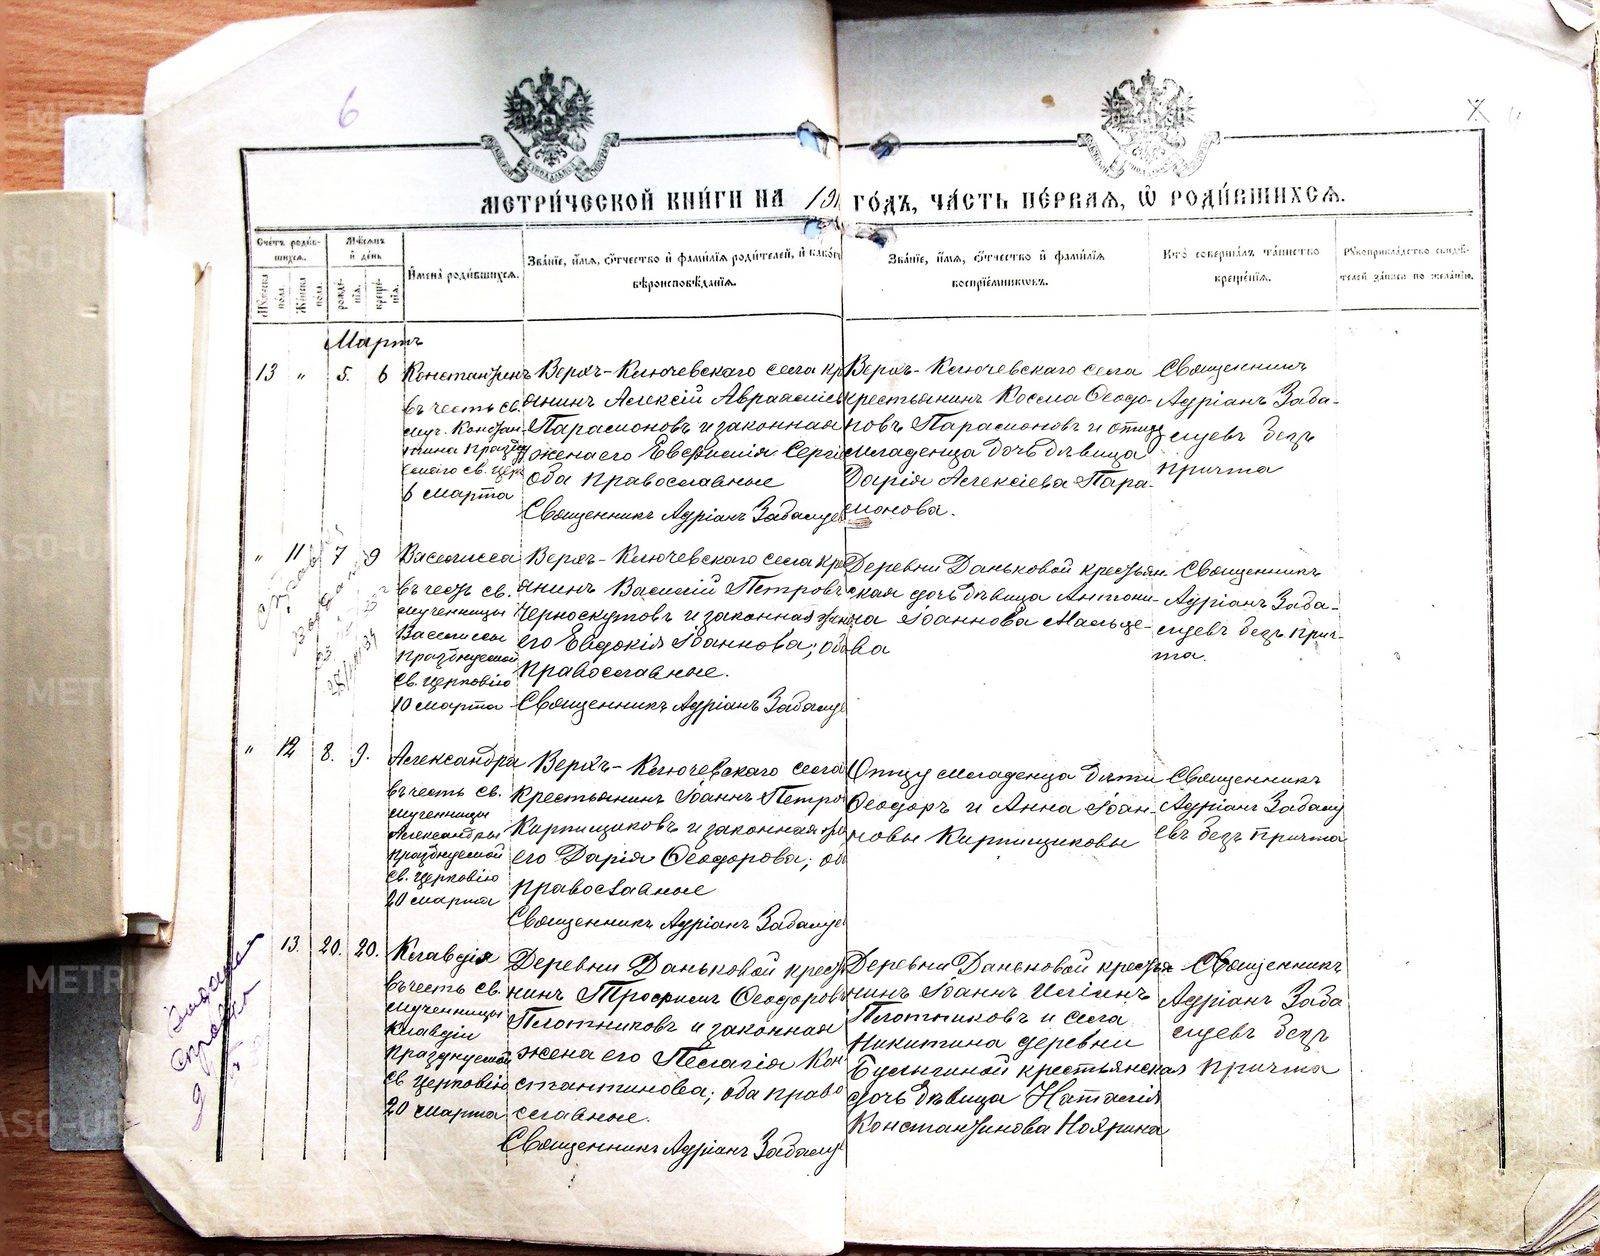 6
МЕТРИ́ЧЕСКОЙ КНИ́ГИ НА 191 ГО́ДЪ, ЧА́СТЬ ПЕ́РВАЯ, Ѡ҆ РОДИ́ВШИХСЯ.
Сче́тъ роди́в-
шихся.
Му́жеска
по́ла.
Же́нска
пола.
Мѣ́сяцъ
и҆ де́нь
рожде́-
нїя.
креще́-
нїя.
И҆мена̀ роди́вшихся.
Зва́нїе, и҆́мя, ѻ҆́тчество и҆ фами́лїя роди́телей, и҆ како́гѡ
вѣроисповѣ́данїя.
Зва́нїе, и҆́мя, ѻ҆́тчество и҆ фами́лїя
воспрїе́мникωвъ.
Кто̀ соверша́лъ та́инство
креще́нїя.
Рꙋкоприкла́дство свидѣ́-
телей за́писи по жела́нїю.
Мартъ
13 " 5. 6
Константинъ
въ честь св.
муч. Констан-
тина празду
емаго св. цер
6 марта
Верхъ-Ключевскаго села кр
янинъ Алексій Аврааміев
Парамоновъ и законная
жена его Евфимія Серги
оба православные
Священникъ Адріанъ Забалуев
Верхъ-Ключевскаго села
крестьянинъ Косма Ѳеодо-
ровъ Парамоновъ и отца
младенца дочь дѣвица
Дарія Алексіева Пара-
монова.
Священникъ
Адріанъ Заба-
луевъ безъ
причта
" 11 7 9
Василисса
въ честь св.
мученицы
Василисы
празднуемой
св. церковію
10 марта
Верхъ-Ключевскаго села кре
янинъ Василій Петровъ
Черноскутовъ и законная жена
его Евдокія Іоаннова; оба
православные.
Священникъ Адріанъ Забалуе
Деревни Даньковой крестьян-
ская дочь дѣвица Антони-
на Іоаннова Мальце-
ва
Священникъ
Адріанъ Заба-
луевъ безъ прич-
та.
" 12 8. 9.
Александра
въ честь св.
мученицы
Александры
празднуемой
св. церковію
20 марта
Верхъ-Ключевскаго села
крестьянинъ Іоаннъ Петро
Кирпищиковъ и законная
его Дарія Ѳеодорова; об
православные
Священникъ Адріанъ Забалуе
Отцу младенца дѣти
Ѳеодоръ и Анна Іоан-
новы Кирпищиковы
Священникъ
Адріанъ Забалу
евъ безъ причта
13. 20. 20.
Клавдія
въ честь св.
мученицы
Клавдіи
празднуемой
св церковію
20 марта
Деревни Даньковой крестья
нинъ Трофимъ Ѳеодоровъ
Плотниковъ и законная
жена его Пелагія Кон
стантинова; оба право
славные.
Священникъ Адріанъ Забалу
Деревни Даньковой крестья
нинъ Іоаннъ Иліинъ
Плотниковъ и села
Никитина деревни
крестьянская
дочь дѣвица
Константинова
Священникъ
Адріанъ Заба
луевъ безъ
причта
справка